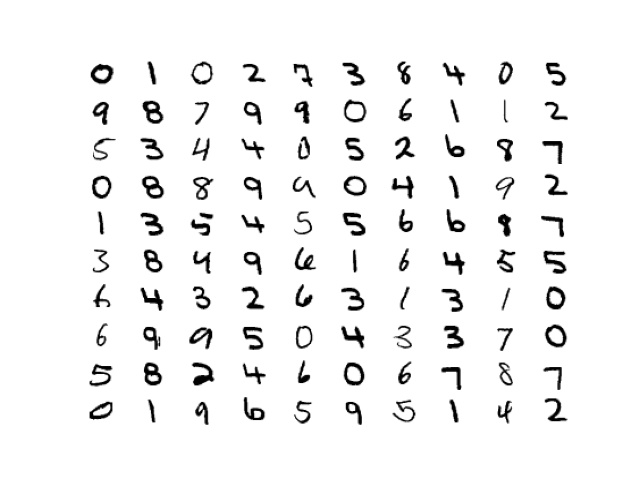 0 1 0 2 7 3 8 4 0 5
9 8 7 9 9 0 6 1 1 2
5 3 4 4 0 5 2 6 8 7
0 8 8 9 9 0 4 1 9 2
1 3 5 4 5 5 6 6 8 7
3 8 4 9 6 1 6 4 5 5
6 4 3 2 6 3 1 3 1 0
6 9 9 5 0 4 3 3 7 0
5 8 2 4 6 0 6 7 8 7
0 1 9 6 5 9 5 1 4 2